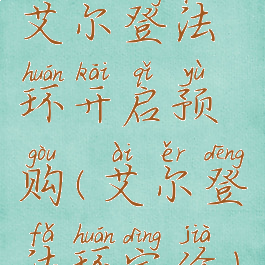 艾尔登法
huán kāi qǐ yù
环开启预
gòu ài ěr dēng
购(艾尔登
fǎ huán dìng jià
法环定价)